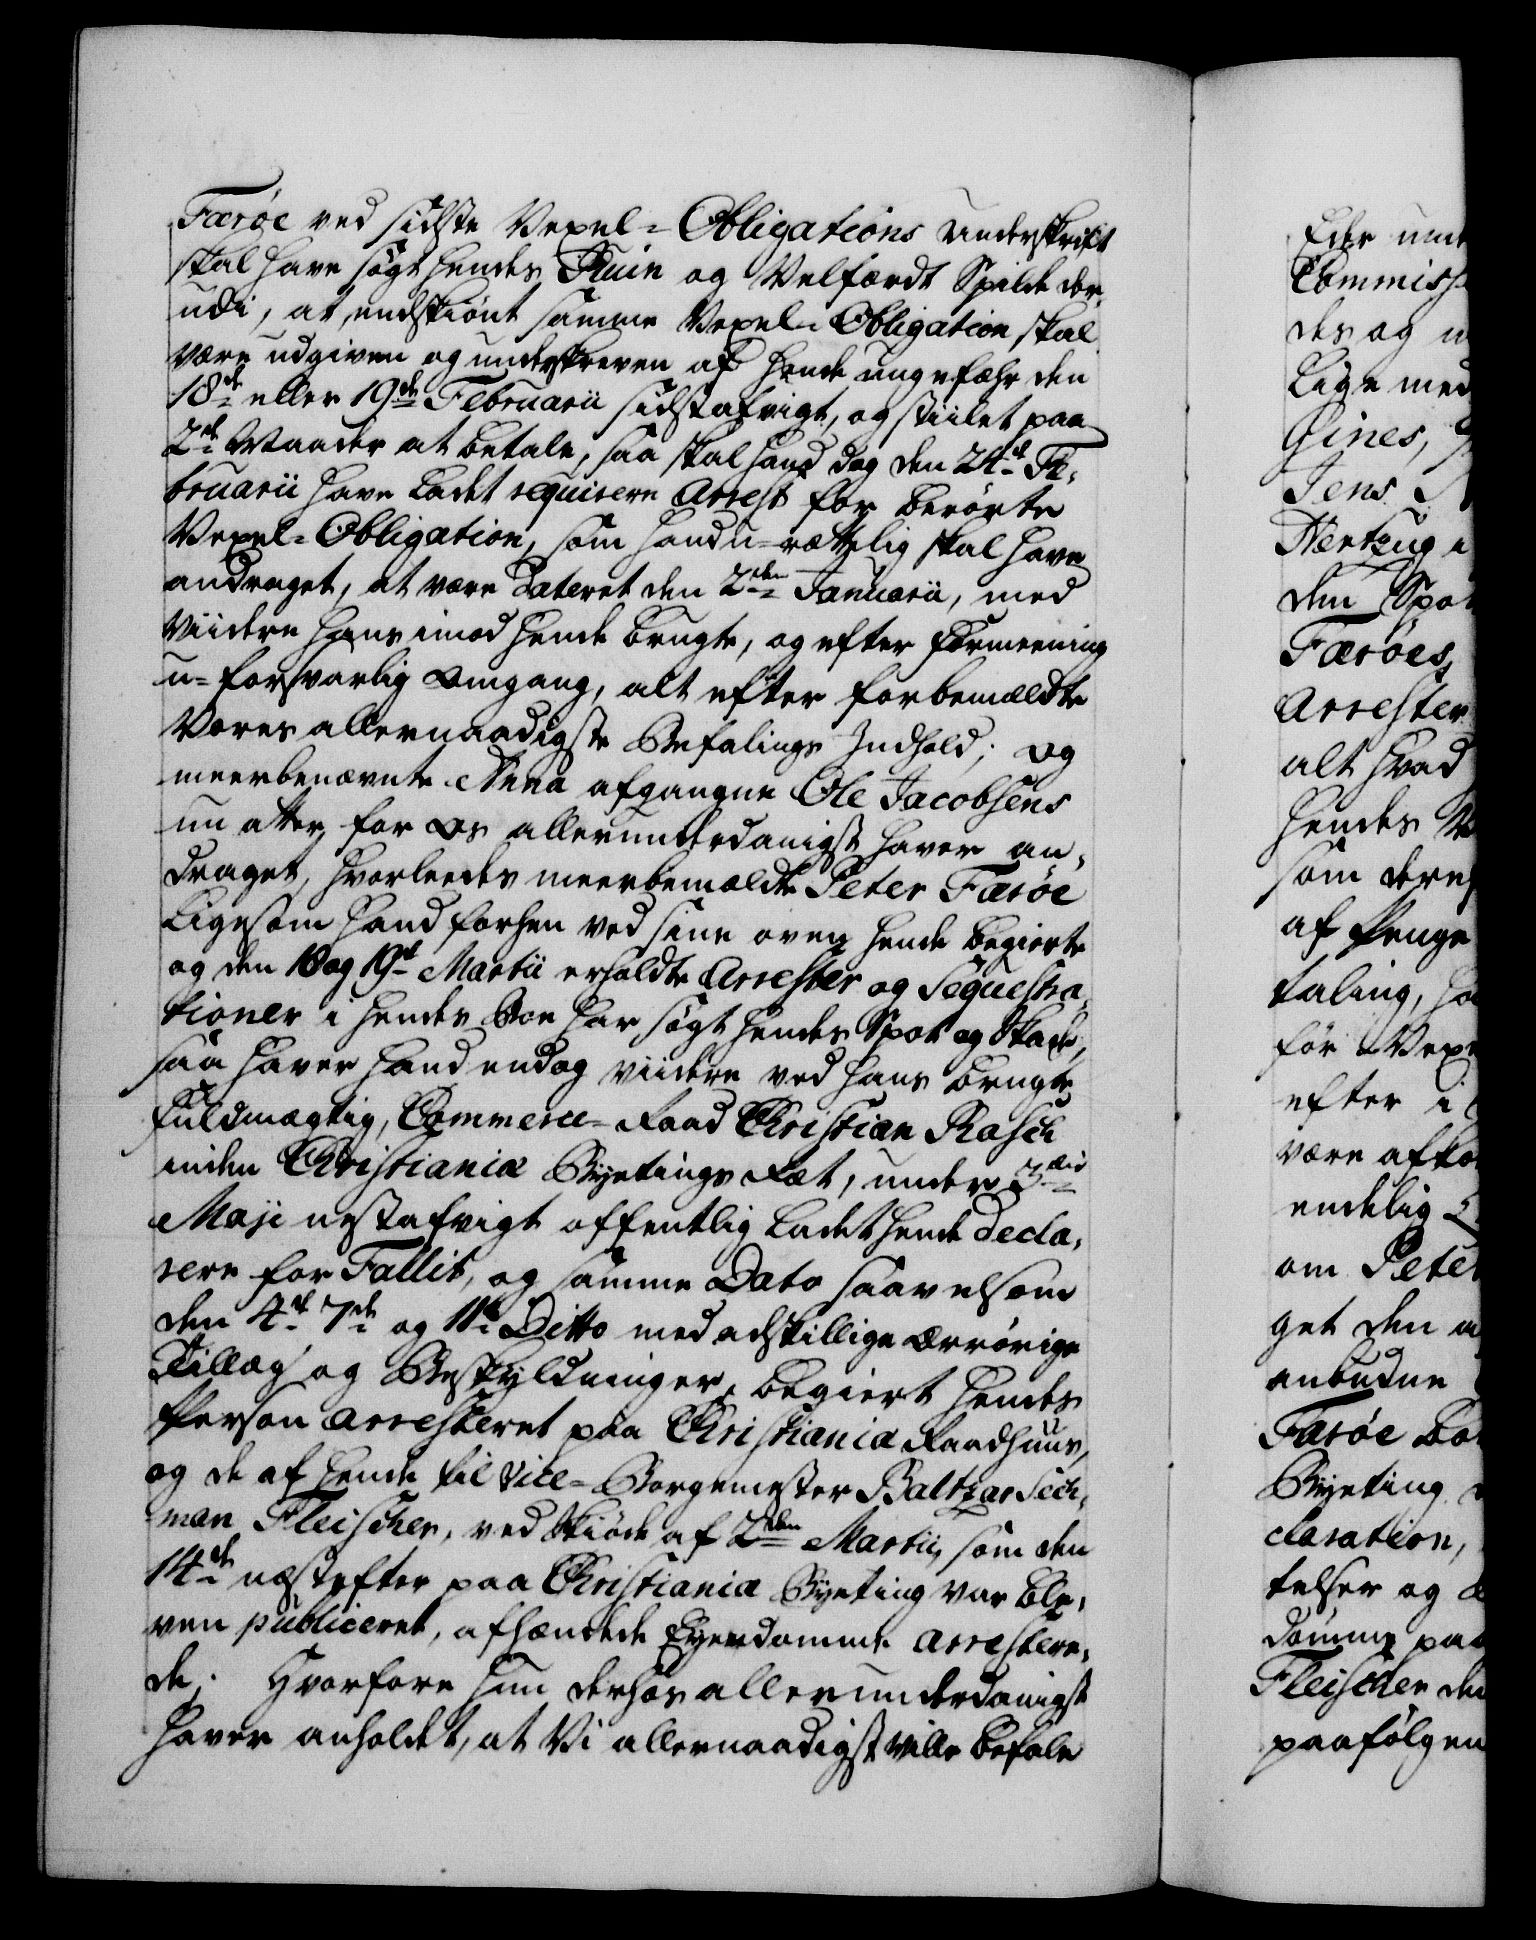 Færøe ved sidste Vexel-Obligations underskrift
skal have søgt hendes Ruin og Velfærdt Spilde der,
udi, at, endskiønt samme Vexel-Obligation skal
være udgiven og underskreven af hende ungefæhr den
18de eller 19de Februarii sidstafvigt, og stiilet paa
2de Maader at betale, saa skal hand dog den 24de Fe,
bruarii have ladet requirere Arrest for berørte
Vexel-Obligation, som hand u-rættelig skal have
andraget, at være dateret den 2den Januarii, med
viidere hans imod hende brugte, og efter formeening
u-forsvarlig Omgang, alt efter forbemældte
Vores allernaadigste Befalings Indhold; og
meerbenævnte Anna afgangne Ole Jacobsens
nu atter for Os allerunderdanigst haver an,
draget, hvorleedes meerbemældte Peter Færøe
Ligesom hand forhen ved sine over hende begierte
og den 18 og 19de Martii erholdte Arrester og Seqvestra,
tioner i hendes Boe har søgt hendes Spot og Skade,
saa haver hand endog viidere ved hans brugte
fuldmægtig, Commerce-Raad Christian Rasch
inden Christiania Byetings Ræt, under 3die
Maji nestafvigt offentlig ladet hende decla,
rere for Fallit, og samme Dato saavelsom
den 4de 7de og 11te Ditto med adskillige ærrørige
Tillæg og Beskyldninger, begiert hendes
Person arresteret paa Christiania Raadhuus,
og de af hende til Vice-Borgemester Baltzar Sech,
man Fleischer, ved Skiøde af 2den Martii, som den
14de næstefter paa Christiania Byeting var ble,
ven publiceret, afhændede Eyendomme arrestere,
de; Hvorfore hun derhos allerunderdanigst
haver anholdet, at Vi allernaadigst ville befale
Eder und
Commiss
des og u
Lige med
Gines,
Jens
Nertzug i
den Spot
Færøes,
Arrester
alt hvad
hendes V
som deres
af Penge
taling, ha
før Vexe
efter i
være afko
endelig
om Peter
get den a
anbudne
Færøe Bo
Byeting
claration,
telser og
domme paa
Fleischer den
paafølgen